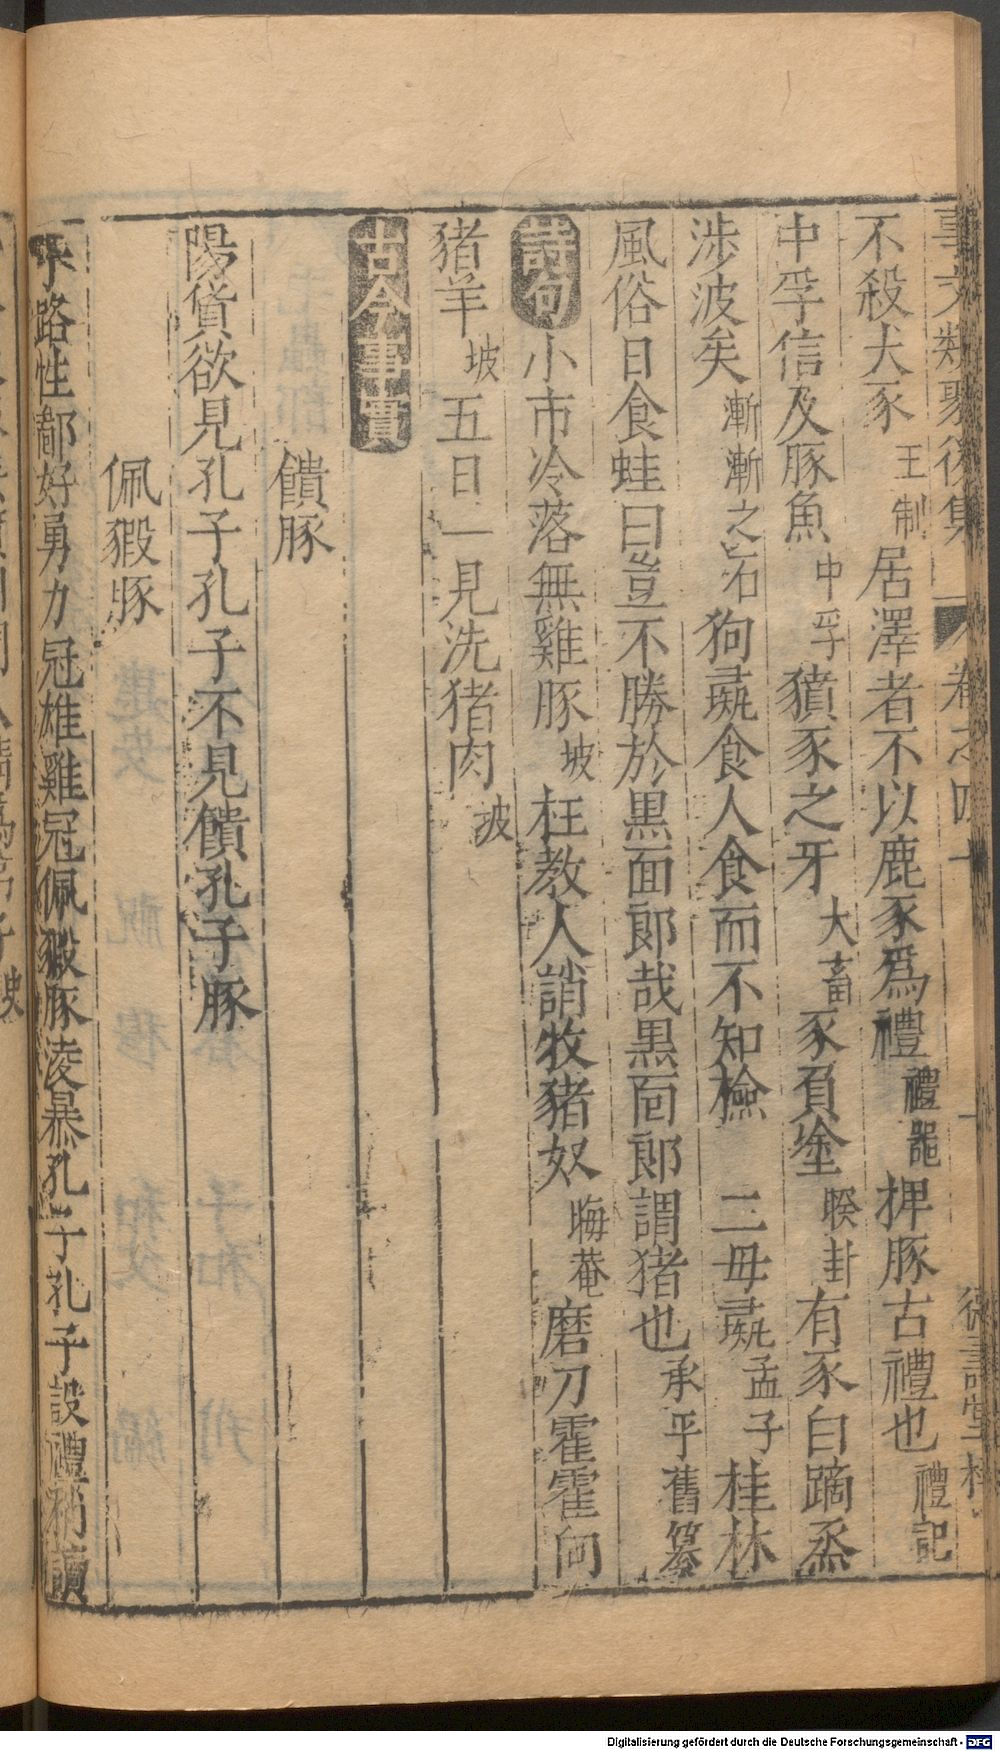 事文類聚後集 卷之四十 十 德壽堂梓
不殺犬豕王制居澤者不以鹿豕爲禮禮器押豚古禮也禮記
中孚信及豚魚中孚豶豕之牙大畜豕負塗睽卦有豕白蹢烝
涉波矣漸漸之石狗彘食人食而不知檢 二母彘孟子桂林
風俗日食蛙曰豈不勝於黑面郎哉黑面郎謂猪也承平舊纂
詩句小市冷落無雞豚坡枉教人誚牧猪奴晦菴磨刀霍霍向
猪羊坡五日一見洗猪肉坡
古今事實
饋豚
陽貨欲見孔子孔子不見饋孔子豚
佩豭豚
子路性鄙好勇力冠雄雞冠佩豭豚凌暴孔子孔子設禮稍
Digitalisierung gefördert durch die Deutsche Forschungsgemeinschaft - DFG